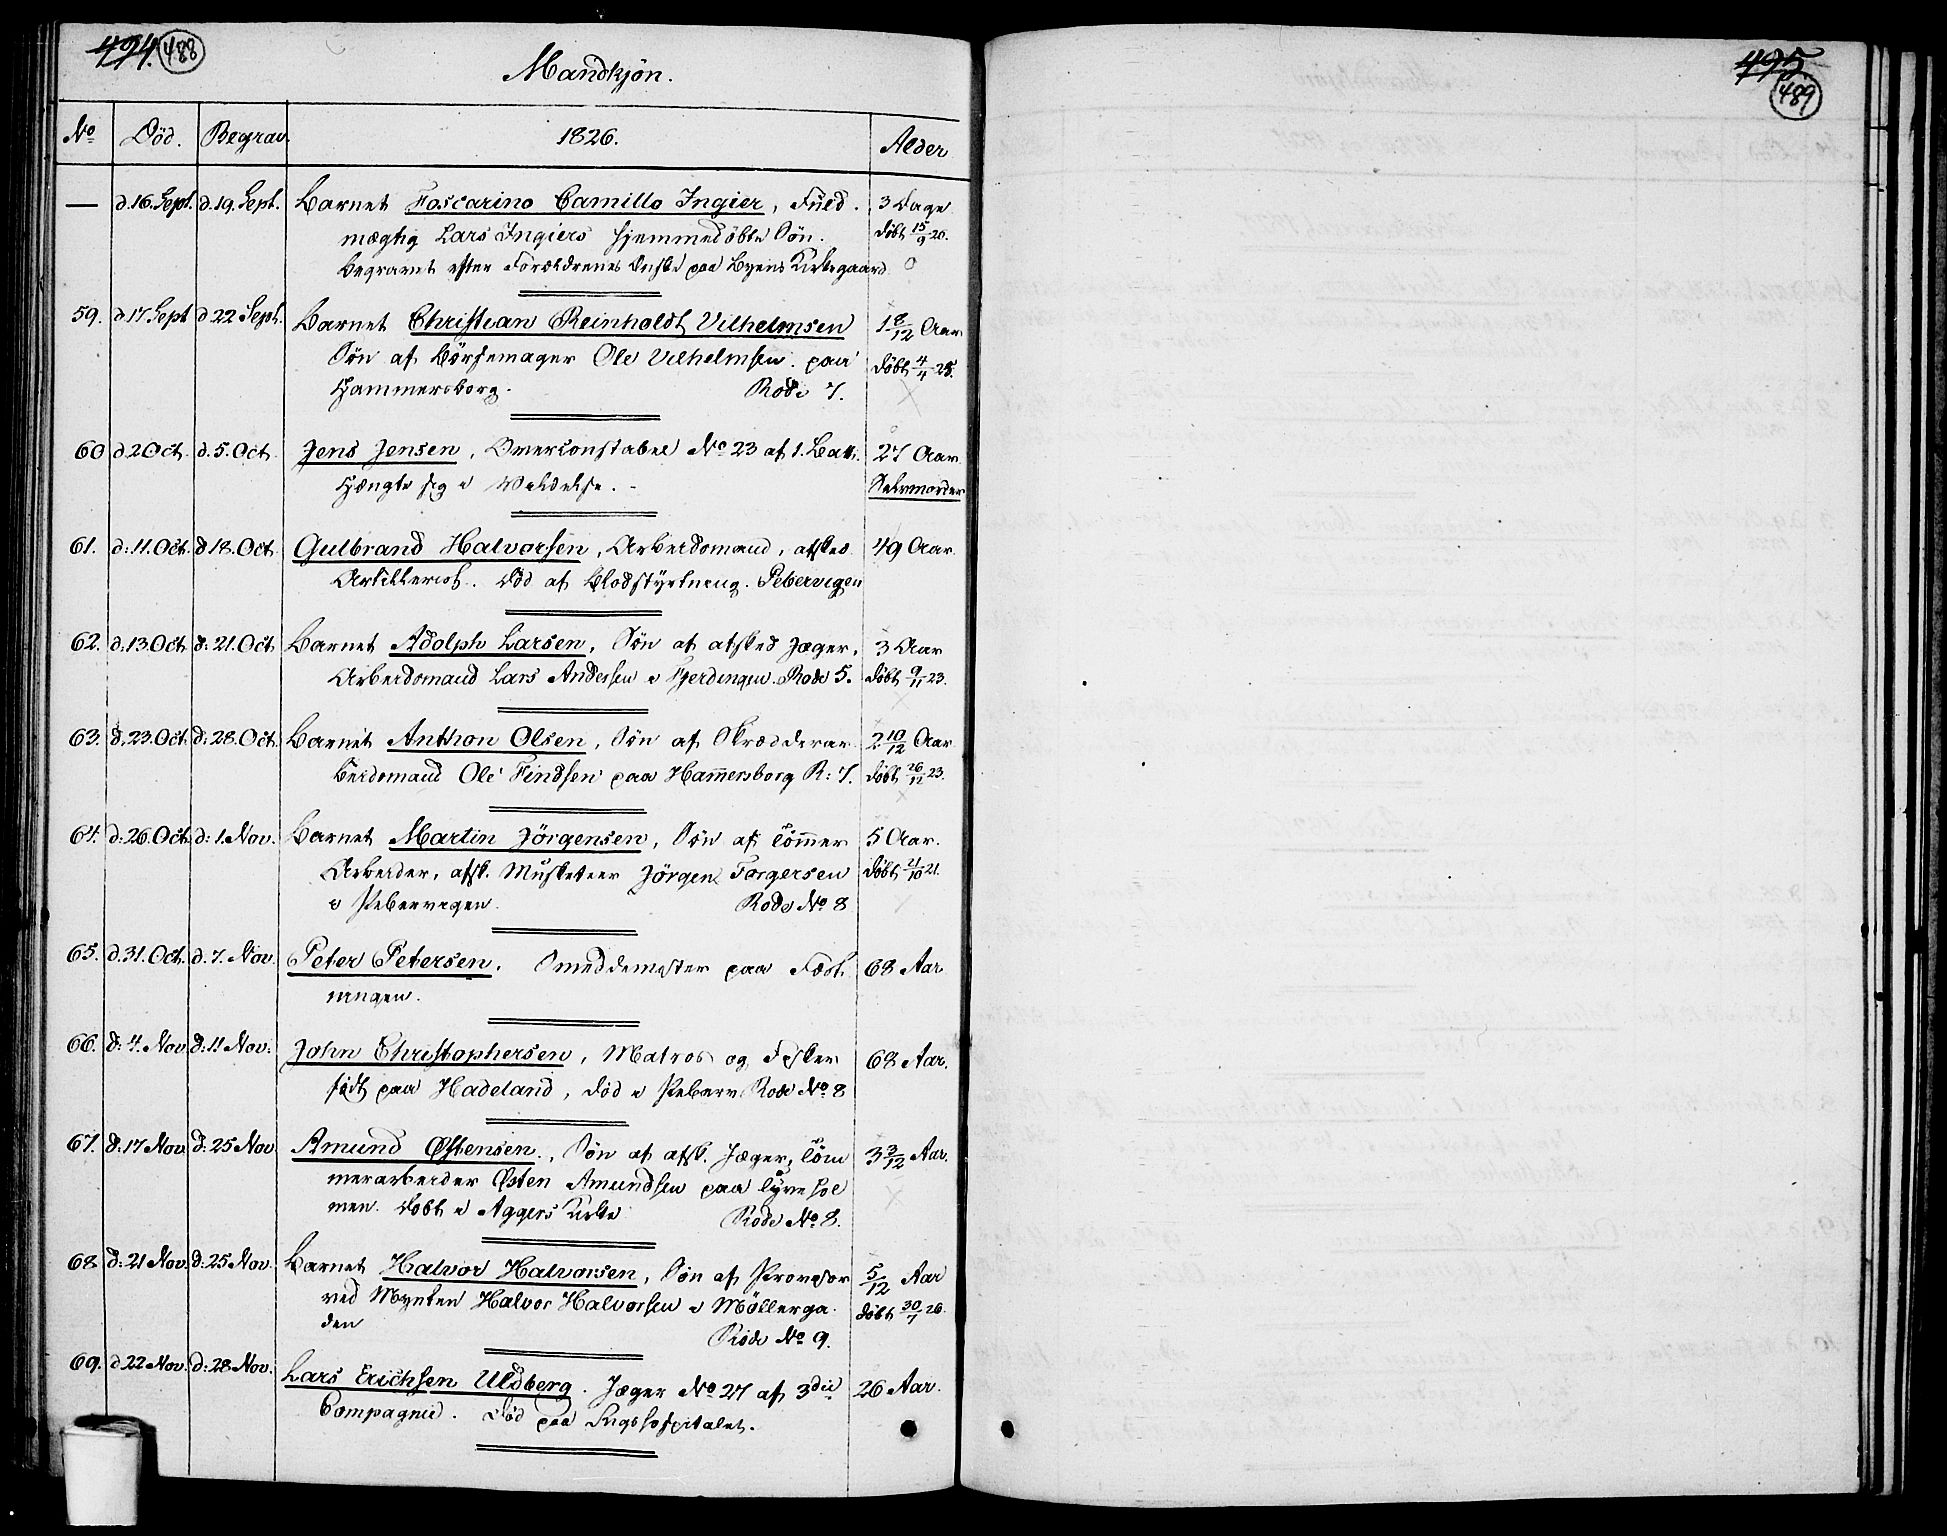 494. 488
Mandkjøn.
No Død. Begrav. 1826. Alder
— d.16.Sept. d.19.Sept. Barnet Foscarino Camillo Ingier, Fuld- 3 Dage
mægtig Lars Ingiers hjemmedøbte Søn. døbt 15/9 26.
begravet efter Forældrenes Ønske paa Byens Kirkegaard
59. d 17 Sept d 22 Sept. Barnet Christian Reinholdt Vilhelmsen 1 8/12 Aar
Søn af Børsemager Ole Vilhelmsen paa døbt 4/4 25.
Hammersborg. Rode 7.
60 d 2 Oct. d.5.Oct. Jens Jensen, Overconstabel No 23 af 1. Batt. 27 Aar
Hængte sig i Selvmorder
61. d:11.Oct. d 18.Oct. Gulbrand Halvorsen, Arbeidsmand, afsked. 49 Aar
Artillerist. død af Blodstyrtning. Pebervigen
62. d.13.Oct. d:21.Oct. Barnet Adolph Larsen, Søn af afsked Jæger, 3 Aar
Arbeidsmand Lars Andersen i Fjerdingen. Rode 5. døbt 9/11 23.
63. d.23.Oct. d:28.Oct. Barnet Anthon Olsen, Søn af Skrædderar- 2 10/12 Aar
beidsmand Ole Findsen paa Hamersborg R: 7. døbt 26/12 23.
64. d:26.Oct. d:1.Nov. Barnet Martin Jörgensen, Søn af Tømmer 5 Aar.
Arbeider, afsk. Musketeer Jörgen Torgersen døbt 21/10 21.
i Pebervigen. Rode No 8
65. d.31.Oct. d.7.Nov. Peter Petersen. Smeddemester paa Fæst- 68 Aar
ningen.
66. d:4.Nov. d:11 Nov: John Christophersen, Matros og Fisker 68 Aar.
født paa Hadeland, død i Peberv. Rode No 8
67. d:17 Nov. d:25 Nov. Amund Østensen., Søn af afsk. Jæger, Tøm 3 3/12 Aar.
merarbeider Østen Amundsen paa Tyvehol
men. døbt i Aggers Kirke Rode No. 8.
68 d:21 Nov. d:25 Nov. Barnet Halvor Halvorsen, Søn af 5/12 Aar
ved Mynten Halvor Halvorsen i Møllerga- døbt 30/7 26.
den Rode No 9.
69. d 22 Nov. d:28 Nov. Lars Erichsen Uldberg. Jæger No 27 af 3die 26 Aar.
Compagnie. død paa Sygehospitalet.
495
489